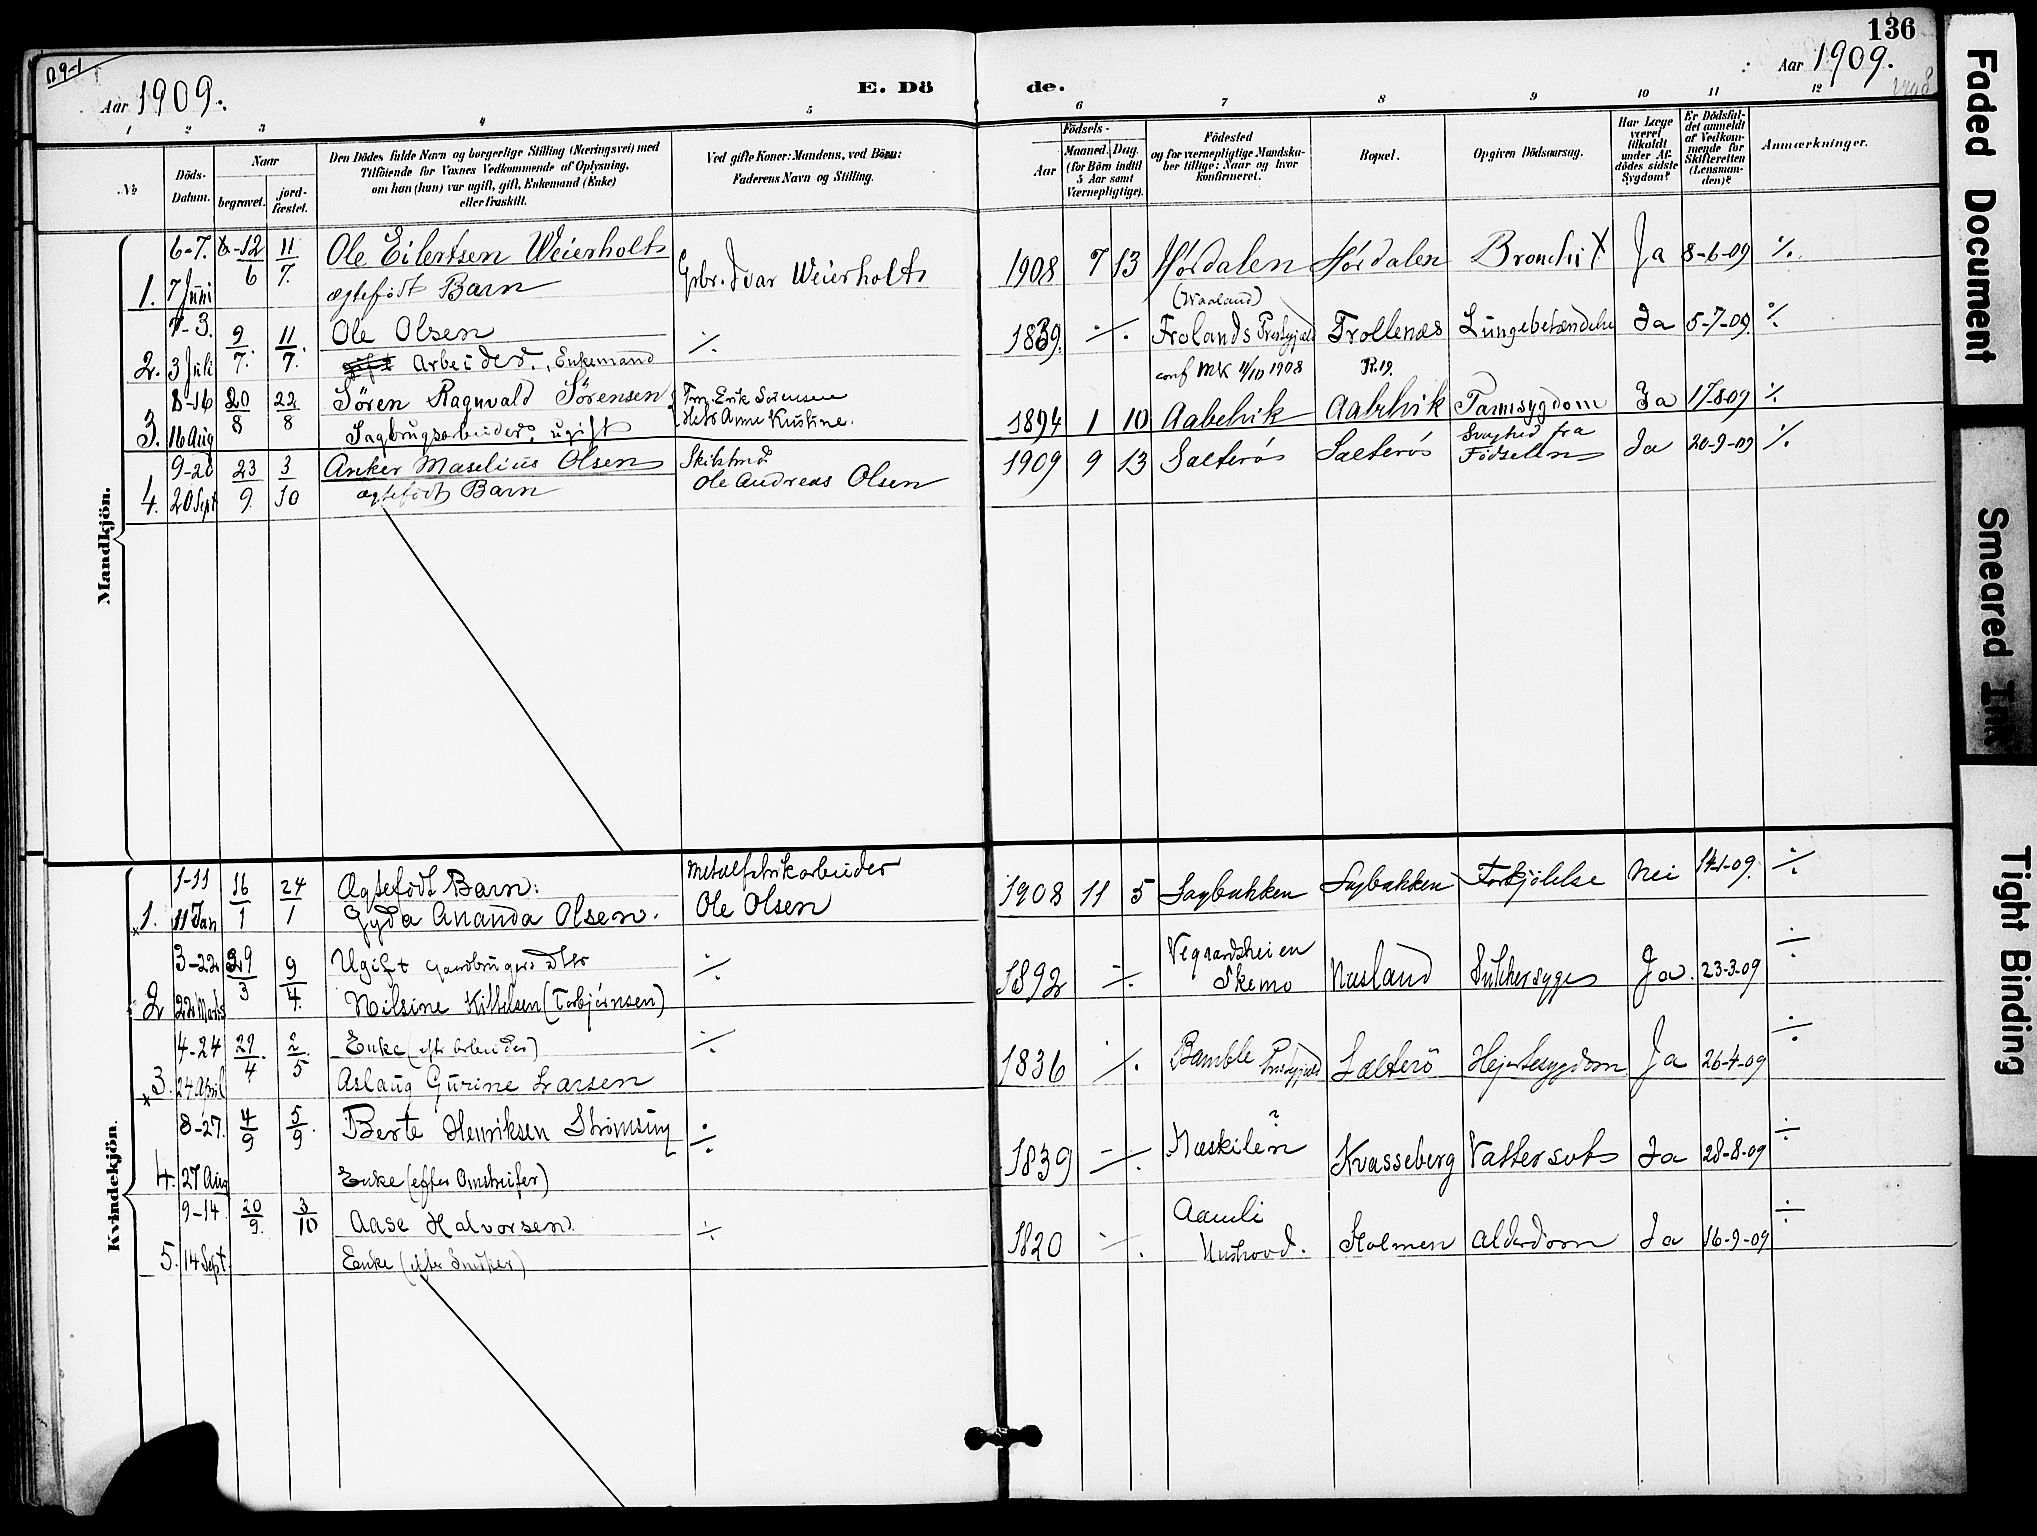 136
Aar 1909.
E. Döde.
Aar 1909.
1 2 3 4 5 6 7 8 9 10 11 12
No
Döds-Datum.
Naar
begravet.
jord-fæstet.
Den Dödes fulde Navn og borgerlige Stilling (Næringsvei) med
Tilföiende for Voxnes Vedkommende af Oplysning,
om han (hun) var ugift, gift, Enkemand (Enke)
eller fraskilt.
Ved gifte Koner: Mandens, ved Börn:
Faderens Navn og Stilling.
Födsels-
Aar
Maaned. Dag.
(for Börn indtil
5 Aar samt
Værnepligtige).
Födested
og for værnepligtige Mandska-
ber tillige: Naar og hvor
konfirmeret.
Bopæl.
Opgiven Dödsaarsag.
Har Læge
været
tilkaldt
under Af-
dödes sidste
Sygdom?
Er Dödsfal-
det anmeldt
af Vedkom-
mende for
Skifteretten
(Lensman-
den)?
Anmærkninger.
Mandkjön.
6-7. 12/6 11/7. Ole Eilertsen Weierholt Gbr. Ivar Weierholt 1908 7 13 Hördalen Hördalen Bronchit Ja 8-6-09 ./.
1. 7 Juni ægtefödt Barn
(Waaland)
7-3. 9/7. 11/7. Ole Olsen ./. 1839. ./. Frolands Prestgjeld Trollenæs Lungebetændelse Ja 5-7-09. ./.
2. 3 Juli Arbeider, Enkemand
conf MK 11/10 1908 P.19.
8-16 20/8 22/8 Sören Ragnvald Sörensen Erik Sörensen
3. 16 Aug Sagbrugsarbeider, ugift Anne Kristine. 1894 1 10 Aabelvik Aabelvik Tarmsygdom Ja 17-8-09 ./.
9-20 23/9 3/10 Anker Maselius Olsen Ole Andreas Olsen 1909 9 13 Salterös Salterös Svaghed fra Födselen Ja 20-9-09 ./.
4. 20 Sept ægtefödt Barn
Kvindekjön.
1-11 16/1 24/1 Ægtefödt Barn: Metalfabrikarbeider
1. 11 Jan Gyda Ananda Olsen. Ole Olsen 1908 11 5 Sagbakken Sagbakken Forkjölelse Nei 14-1-09. ./.
3-22 29/3 9/4. Ugift Gaardbrugerdtr ./. 1892 ./. Vegaardsheien Skemo Næsland Sukkersyge Ja. 23-3-09 ./.
2 22 Marts Nilsine Kittelsen (Torbjörnsen)
4-24 29/4 2/5 Enke (efter Arbeider) ./. 1836 ./. Bamble Prestgjeld Salterö Hjertesygdom Ja 26-4-09 ./.
3. 24 April Aslaug Gurine Larsen
8-27. 4/9 5/9. Berte Henriksen Strömsing ./. 1839 ./. Næskilen ? Kvasseberg Vattersot Ja 28-8-09 ./.
4. 27 Aug Enke (efter Omstreifer)
9-14 20/9. 3/10 Aase Halvorsen ./. 1820 ./. Aamli Holmen Alderdom Ja 16-9-09 ./.
5. 14 Sept. Enke (efter Snedker)
Faded Document
Smeared Ink
Tight Binding